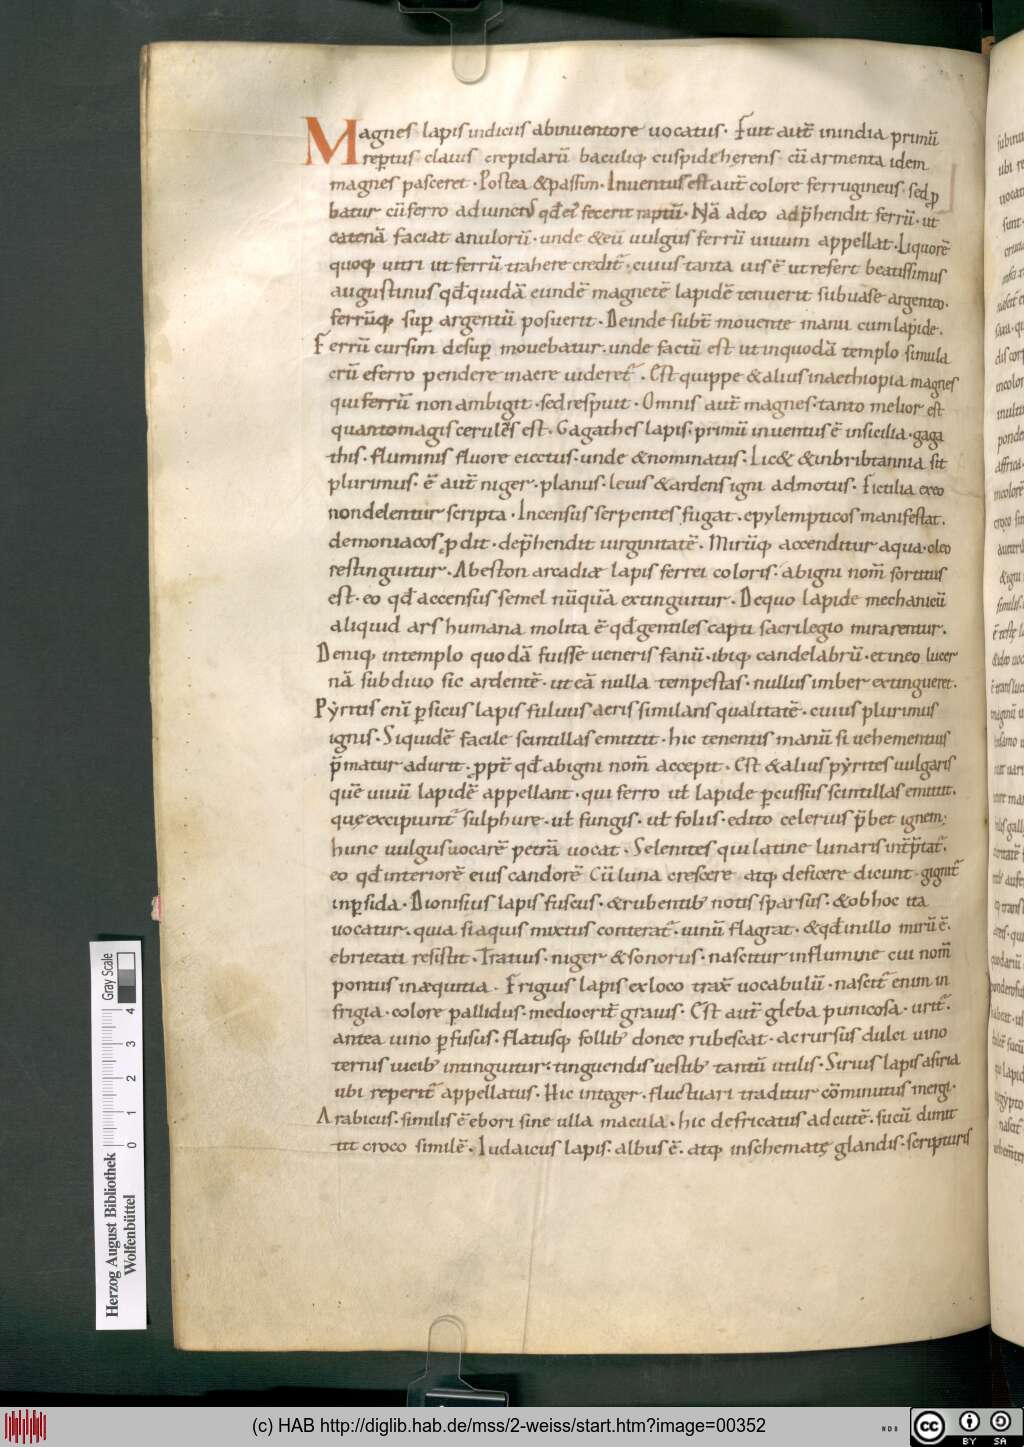 Magnes lapis indicus ab inuentore uocatus. Fuit aut̄ in india primū
rep̄tus clauis crepidarū baculiq; cuspide hęrens cū armenta idem
magnes pasceret. Postea & passim. Inuentus est aut̄ colore ferrugineus. sed ꝓ
batur cū ferro adiuncto qđ ei fecerit raptū. Nā adeo adp̄hendit ferrū. ut
catenā faciat anulorū. unde & eū uulgus ferrū uiuum appellat. Liquorē
quoq; uitri ut ferrū trahere credit̄. cuius tanta uis ē ut refert beatissimus
augustinus qđ quidā eundē magnetē lapidē tenuerit sub uase argenteo.
ferrūq; sup̄ argentū posuerit. Deinde subt̄ mouente manu cum lapide.
Ferrū cursim desup̄ mouebatur. unde factū est ut in quodā templo simula
crū e ferro pendere in aere uideret̄. Est quippe & alius in aethiopia magnes
qui ferrū non ambigit. sed respuit. Omnis aut̄ magnes. tanto melior est
quanto magis ceruleꝰ est. Gagathes lapis. primū inuentus ē in sicilia. gaga
this. fluminis fluore eiectus. unde & nominatus. Lic& & in bribtannia sit
plurimus. ē aut̄ niger. planus. leuis & ardens igni admotus. Fictilia ex eo
non delentur scripta. Incensus serpentes fugat. epylempticos manifestat.
demoniacos ꝑdit. dep̄hendit uirginitatē. Mirūq; accenditur aqua. oleo
restinguitur. Abeston arcadiæ lapis ferrei coloris. ab igni nom̄ sortitus
est. eo qđ accensus semel nūquā extinguitur. De quo lapide mechanicū
aliquid ars humana molita ē qđ gentiles capti sacrilegio mirarentur.
Deniq; in templo quodā fuisse ueneris fanū. ibiq; candelabrū. et in eo lucer
nā sub diuo sic ardentē. ut eā nulla tempestas. nullus imber extingueret.
Pẏritis enī ꝑsicus lapis fuluus aeris similans qualitatē. cuius plurimus
ignis. Siquidē facile scintillas emittit. hic tenentis manū si uehementius
p̄matur adurit. ꝓpt̄ qđ ab igni nom̄ accepit. Est & alius pẏrites uulgaris
quē uiuū lapidē appellant. qui ferro ut lapide ꝑcussus scintillas emittit.
quę excipiunt̄ sulphure. ut fungis. ut foliis. edito celerius p̄bet ignem;
hunc uulgus uocarē petrā uocat. Selenites qui latine lunaris int̄p̄tat̄.
eo qđ interiorē eius candorē cū luna crescere atq; deficere dicunt. gignit̄
in ꝑsida. Dionisius lapis fuscus. & rubentib; notis sparsus. & ob hoc ita
uocatur. quia si aquis mixtus conterat̄. uinū flagrat. & qđ in illo mirū ē.
ebrietati resistit. Tratius. niger & sonorus. nascitur in flumine cui nom̄
pontus in æquitia. Frigius lapis ex loco trax̄ uocabulū. nascit̄ enim in
frigia. colore pallidus. mediocrit̄ grauis. Est aut̄ gleba punicosa. urit̄.
antea uino ꝑfusus. flatusq; follib; donec rubescat. ac rursus dulci uino
ternis uicib; intinguitur: tinguendis uestib; tantū utilis. Sirius lapis a siria
ubi reperit̄ appellatus. Hic integer. fluctuari traditur cōminutus mergi.
Arabicus. similis ē ebori sine ulla macula. hic defricatus ad cutē. sucū dimit
tit croco similē. Iudaicus lapis. albus ē. atq; in schematę glandis. scripturis
Herzog August Bibliothek
Wolfenbüttel
Gray Scale
0 1 2 3 4
(c) HAB http://diglib.hab.de/mss/2-weiss/start.htm?image=00352
cc BY SA